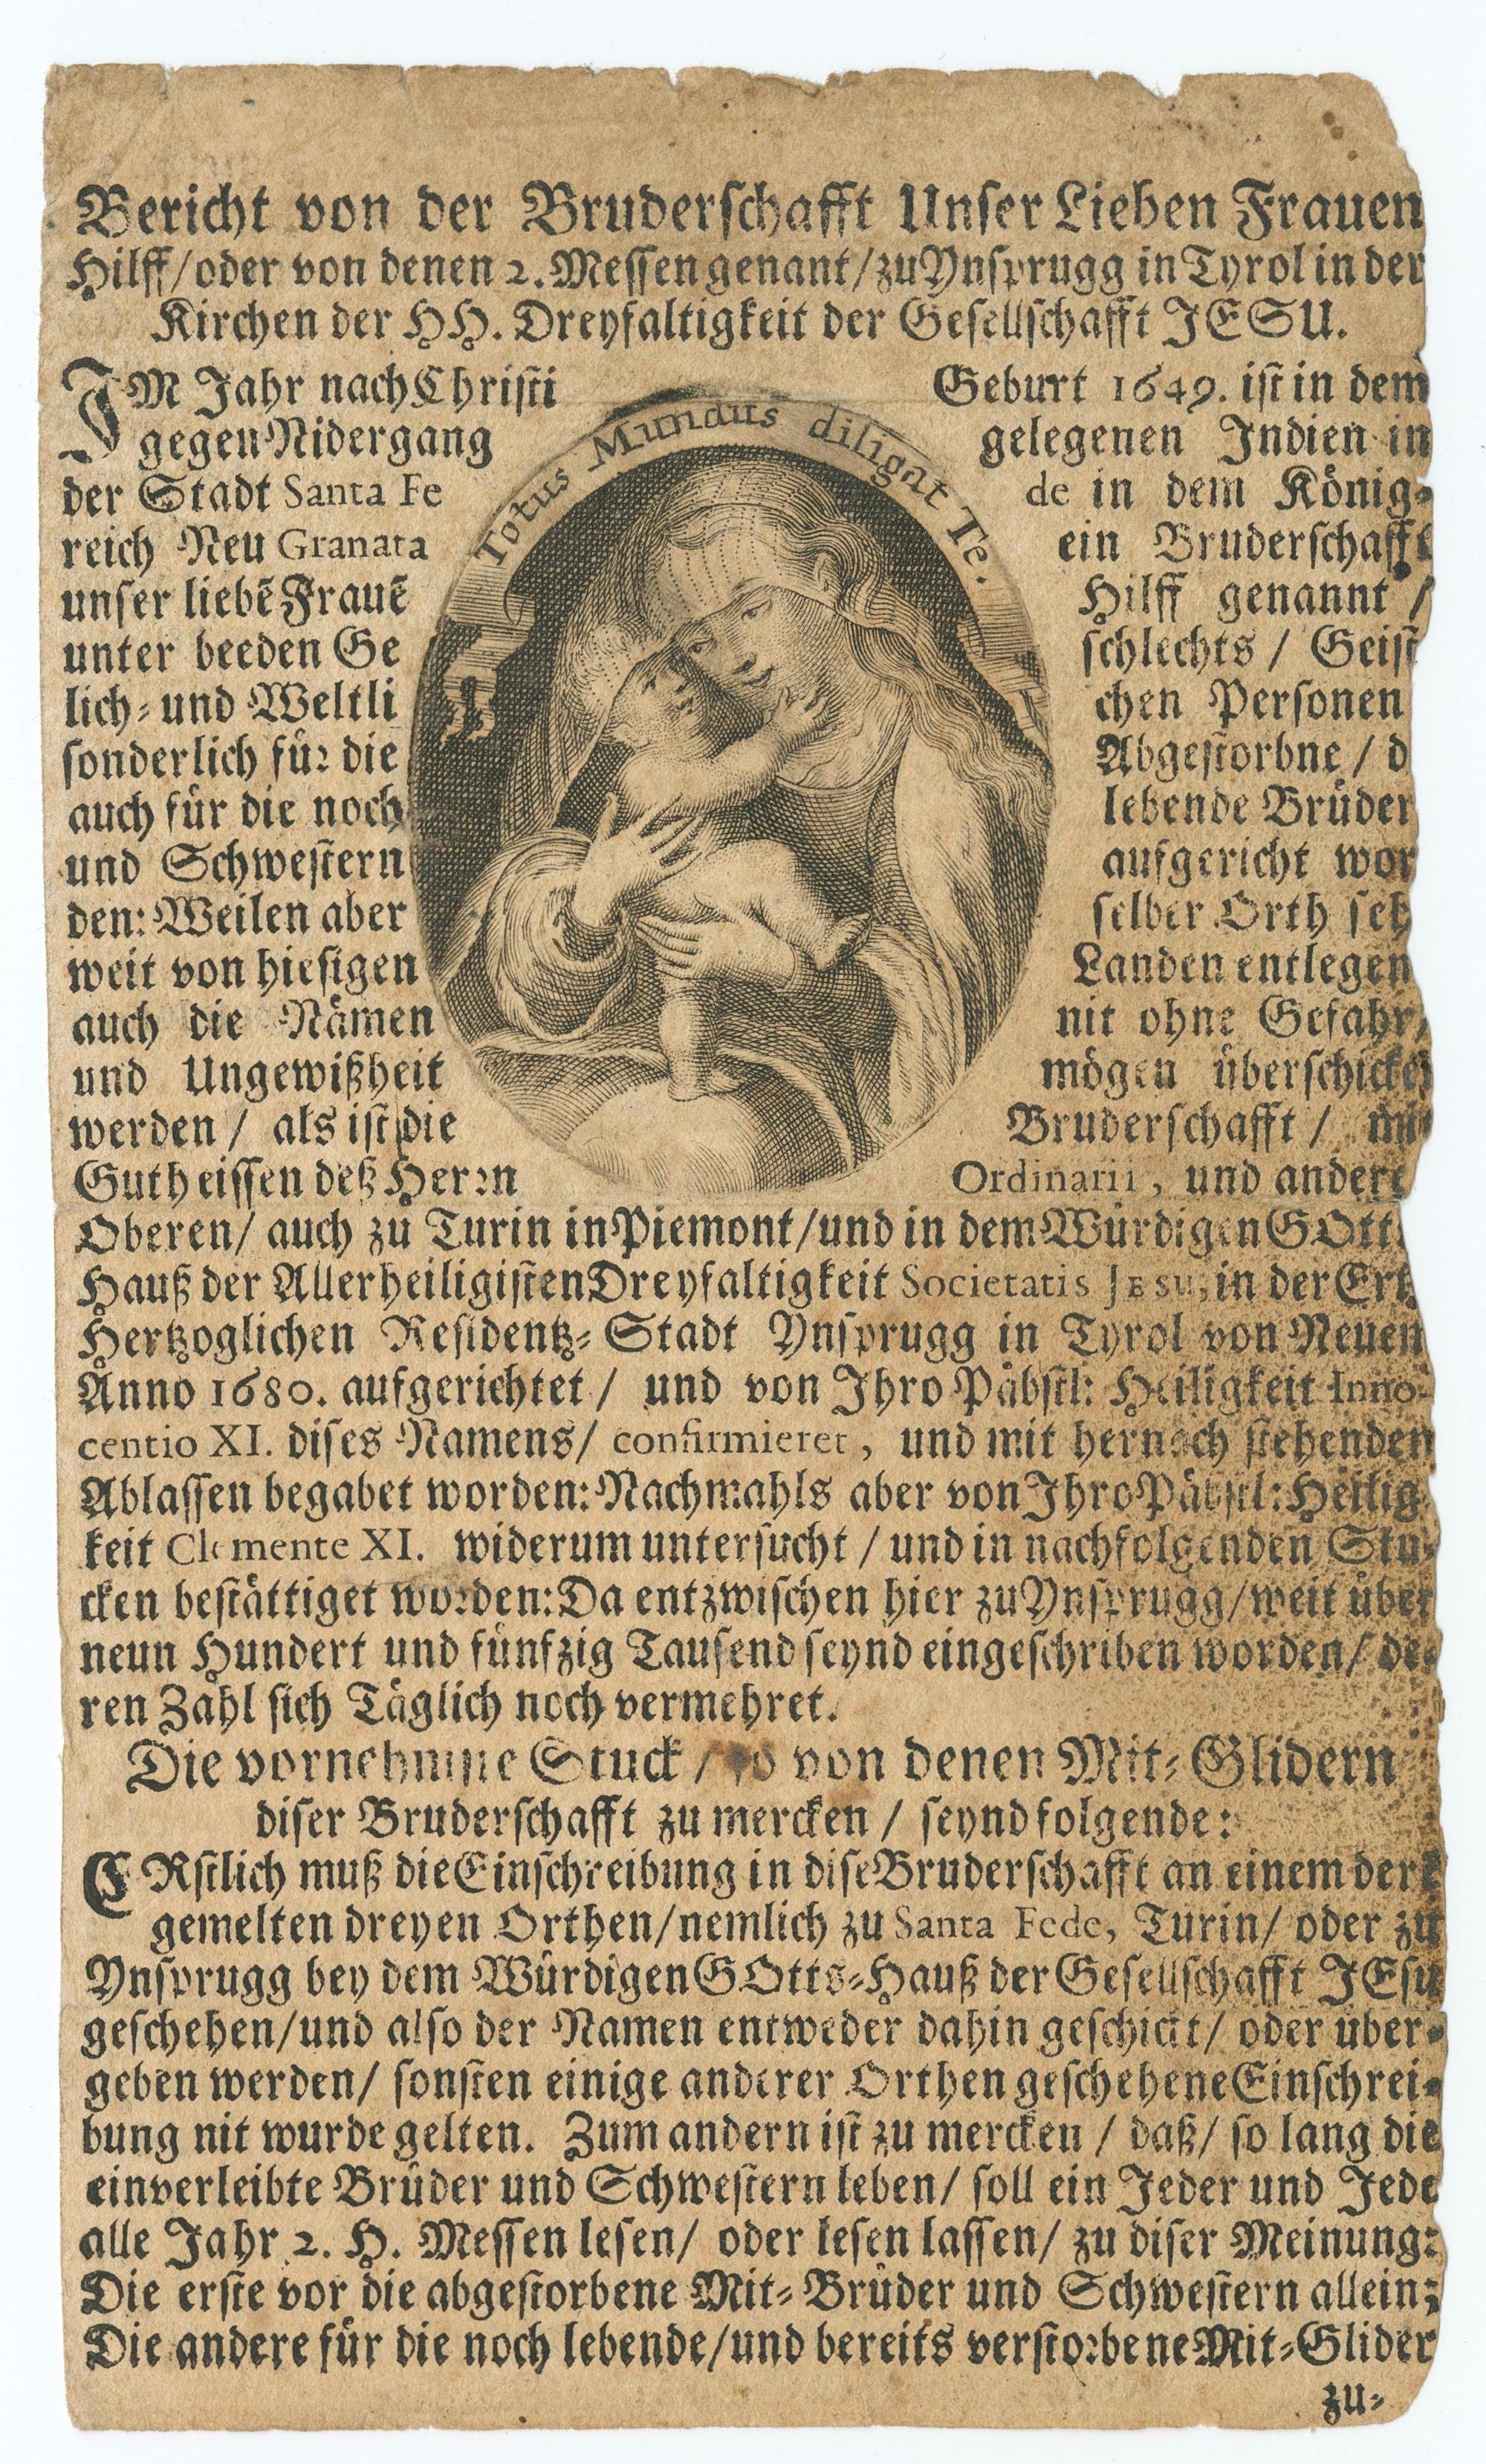 Bericht von der Bruderschafft Unser Lieben Frauen
Hilff/oder von denen 2. Messen genant/zu Ynsprugg in Tyrol in der
Kirchen der HH. Dreyfaltigkeit der Gesellschafft JESU.
IM Jahr nach Christi Geburt 1649. ist in dem
gegen Nidergang gelegenen Indien in
der Stadt Santa Fe de in dem König-
reich Neu Granata ein Bruderschafft
unser liebẽ Frauẽ Hilff genannt /
unter beeden Ge schlechts / Geist
lich- und Weltli chen Personen
sonderlich für die Abgestorbne / d
auch für die noch lebende Brüder
und Schwestern aufgericht wor
den: Weilen aber selber Orth seh
weit von hiesigen Landen entlegen
auch die Nämen nit ohne Gefahr,
und Ungewißheit mögen überschicket
werden / als ist die Bruderschafft / mit
Gutheissen deß Herrn Ordinarii, und andere
Oberen/ auch zu Turin in Piemont/und in dem Würdigen GOtt
Hauß der Allerheiligisten Dreyfaltigkeit Societatis JESU, in der Ertz
Hertzoglichen Residentz-Stadt Ynsprugg in Tyrol von Neuen
Anno 1680. aufgerichtet / und von Ihro Päbstl: Heiligkeit Inno-
centio XI. dises Namens/ confirmieret, und mit hernach stehenden
Ablassen begabet worden: Nachmahls aber von Ihro Päbstl: Heilig
keit Clemente XI. widerum untersucht / und in nachfolgenden Stu-
cken bestättiget worden: Da entzwischen hier zu Ynsprugg/weit über
neun Hundert und fünfzig Tausend seynd eingeschriben worden/ de-
ren Zahl sich Täglich noch vermehret.
Die vornehmste Stuck / so von denen Mit-Glidern
diser Bruderschafft zu mercken / seynd folgende:
ERstlich muß die Einschreibung in dise Bruderschafft an einem der
gemelten dreyen Orthen/nemlich zu Santa Fede, Turin/ oder zu
Ynsprugg bey dem Würdigen GOtts-Hauß der Gesellschafft JEsu
geschehen/und also der Namen entweder dahin geschickt/ oder über-
geben werden/ sonsten einige anderer Orthen geschehene Einschrei-
bung nit wurde gelten. Zum andern ist zu mercken / daß/ so lang die
einverleibte Brüder und Schwestern leben/ soll ein Jeder und Jede
alle Jahr 2. H. Messen lesen/ oder lesen lassen/ zu diser Meinung:
Die erste vor die abgestorbene Mit-Brüder und Schwestern allein;
Die andere für die noch lebende/und bereits verstorbene Mit-Glider
zu-
Totus Mundus diligat Te.